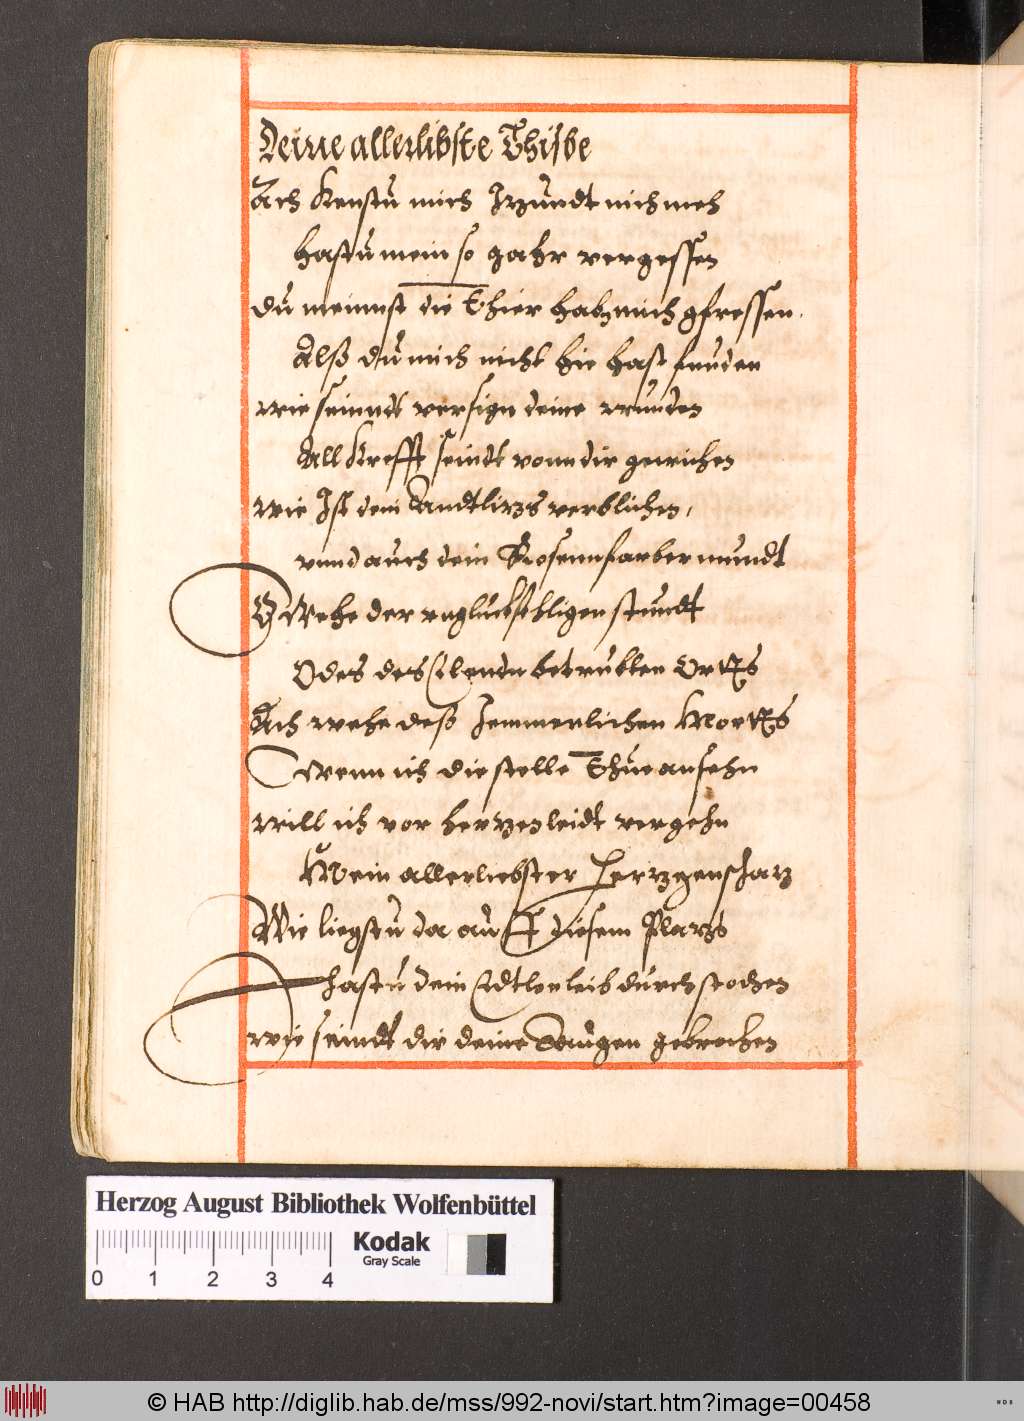 Deine allerlibste Thisbe
Ach Kenstu mich Itzundt nich meh
hastu mein so gahr vergessen
du meinnst die Thier habn mich gfressen.
Alß du mich nicht hie hast funden
wie seinndt deine wunden
All Krefft seindt vonn dir gewichen
wie Ist dein Andtlitzs verblichen,
unnd auch dein Rosennfarber mundt
O Wehe der unglückseligen stundt
O des des Elendn betrubten Orttes
Ach wehe deß Jemmerlichen Morttes
Wenn ich die stelle Thue ansehn
will ich vor hertzenleidt vergehn
Mein allerliebster Hertzgenschatz
Wie liegstu da auff diesem Platzs
hastu dein Edtlen leib durchstochen
wie seindt dir deine Augen gebrochen
Herzog August Bibliothek Wolfenbüttel
Kodak
Gray Scale
0 1 2 3 4
© HAB http://diglib.hab.de/mss/992-novi/start.htm?image=00458